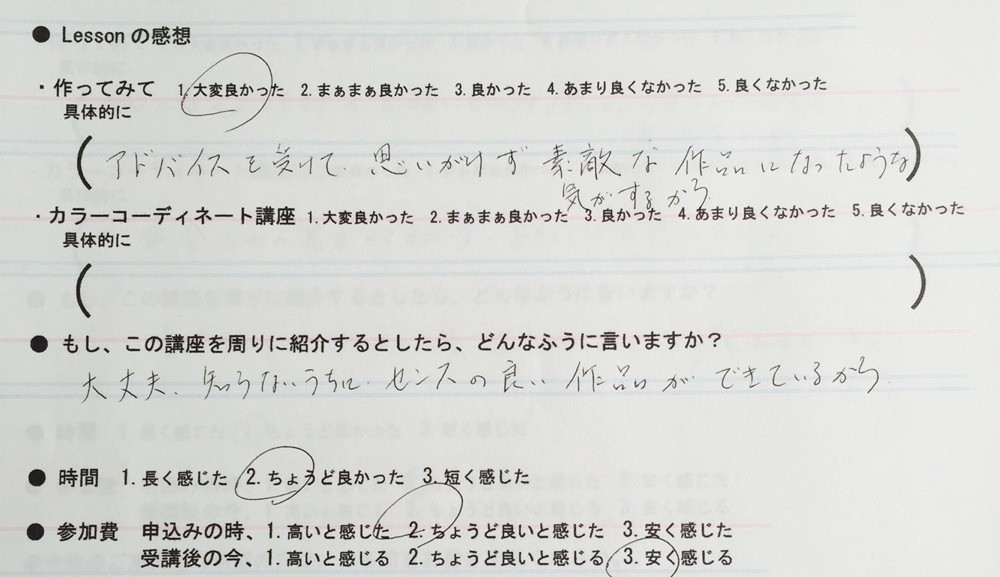 ● Lessonの感想
・作ってみて 1.大変良かった 2.まぁまぁ良かった 3.良かった 4.あまり良くなかった 5.良くなかった
具体的に
(アドバイスを受けて 思いがけず 素敵な 作品になったような)
気がするから
・カラーコーディネート講座 1.大変良かった 2.まぁまぁ良かった 3.良かった 4.あまり良くなかった 5.良くなかった
具体的に
( )
● もし、この講座を周りに紹介するとしたら、どんなふうに言いますか？
大丈夫、知らないうちに、センスの良い 作品ができているから
● 時間 1.長く感じた 2.ちょうど良かった 3.短く感じた
● 参加費 申込みの時、1.高いと感じた 2.ちょうど良いと感じた 3.安く感じた
受講後の今、1.高いと感じる 2.ちょうど良いと感じる 3.安く感じる